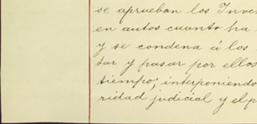 se aprueban los Inven
en autos cuanto ha
y se condena á los
tar y pasar por ellos
tiempo; interponiendo
ridad judicial y el p